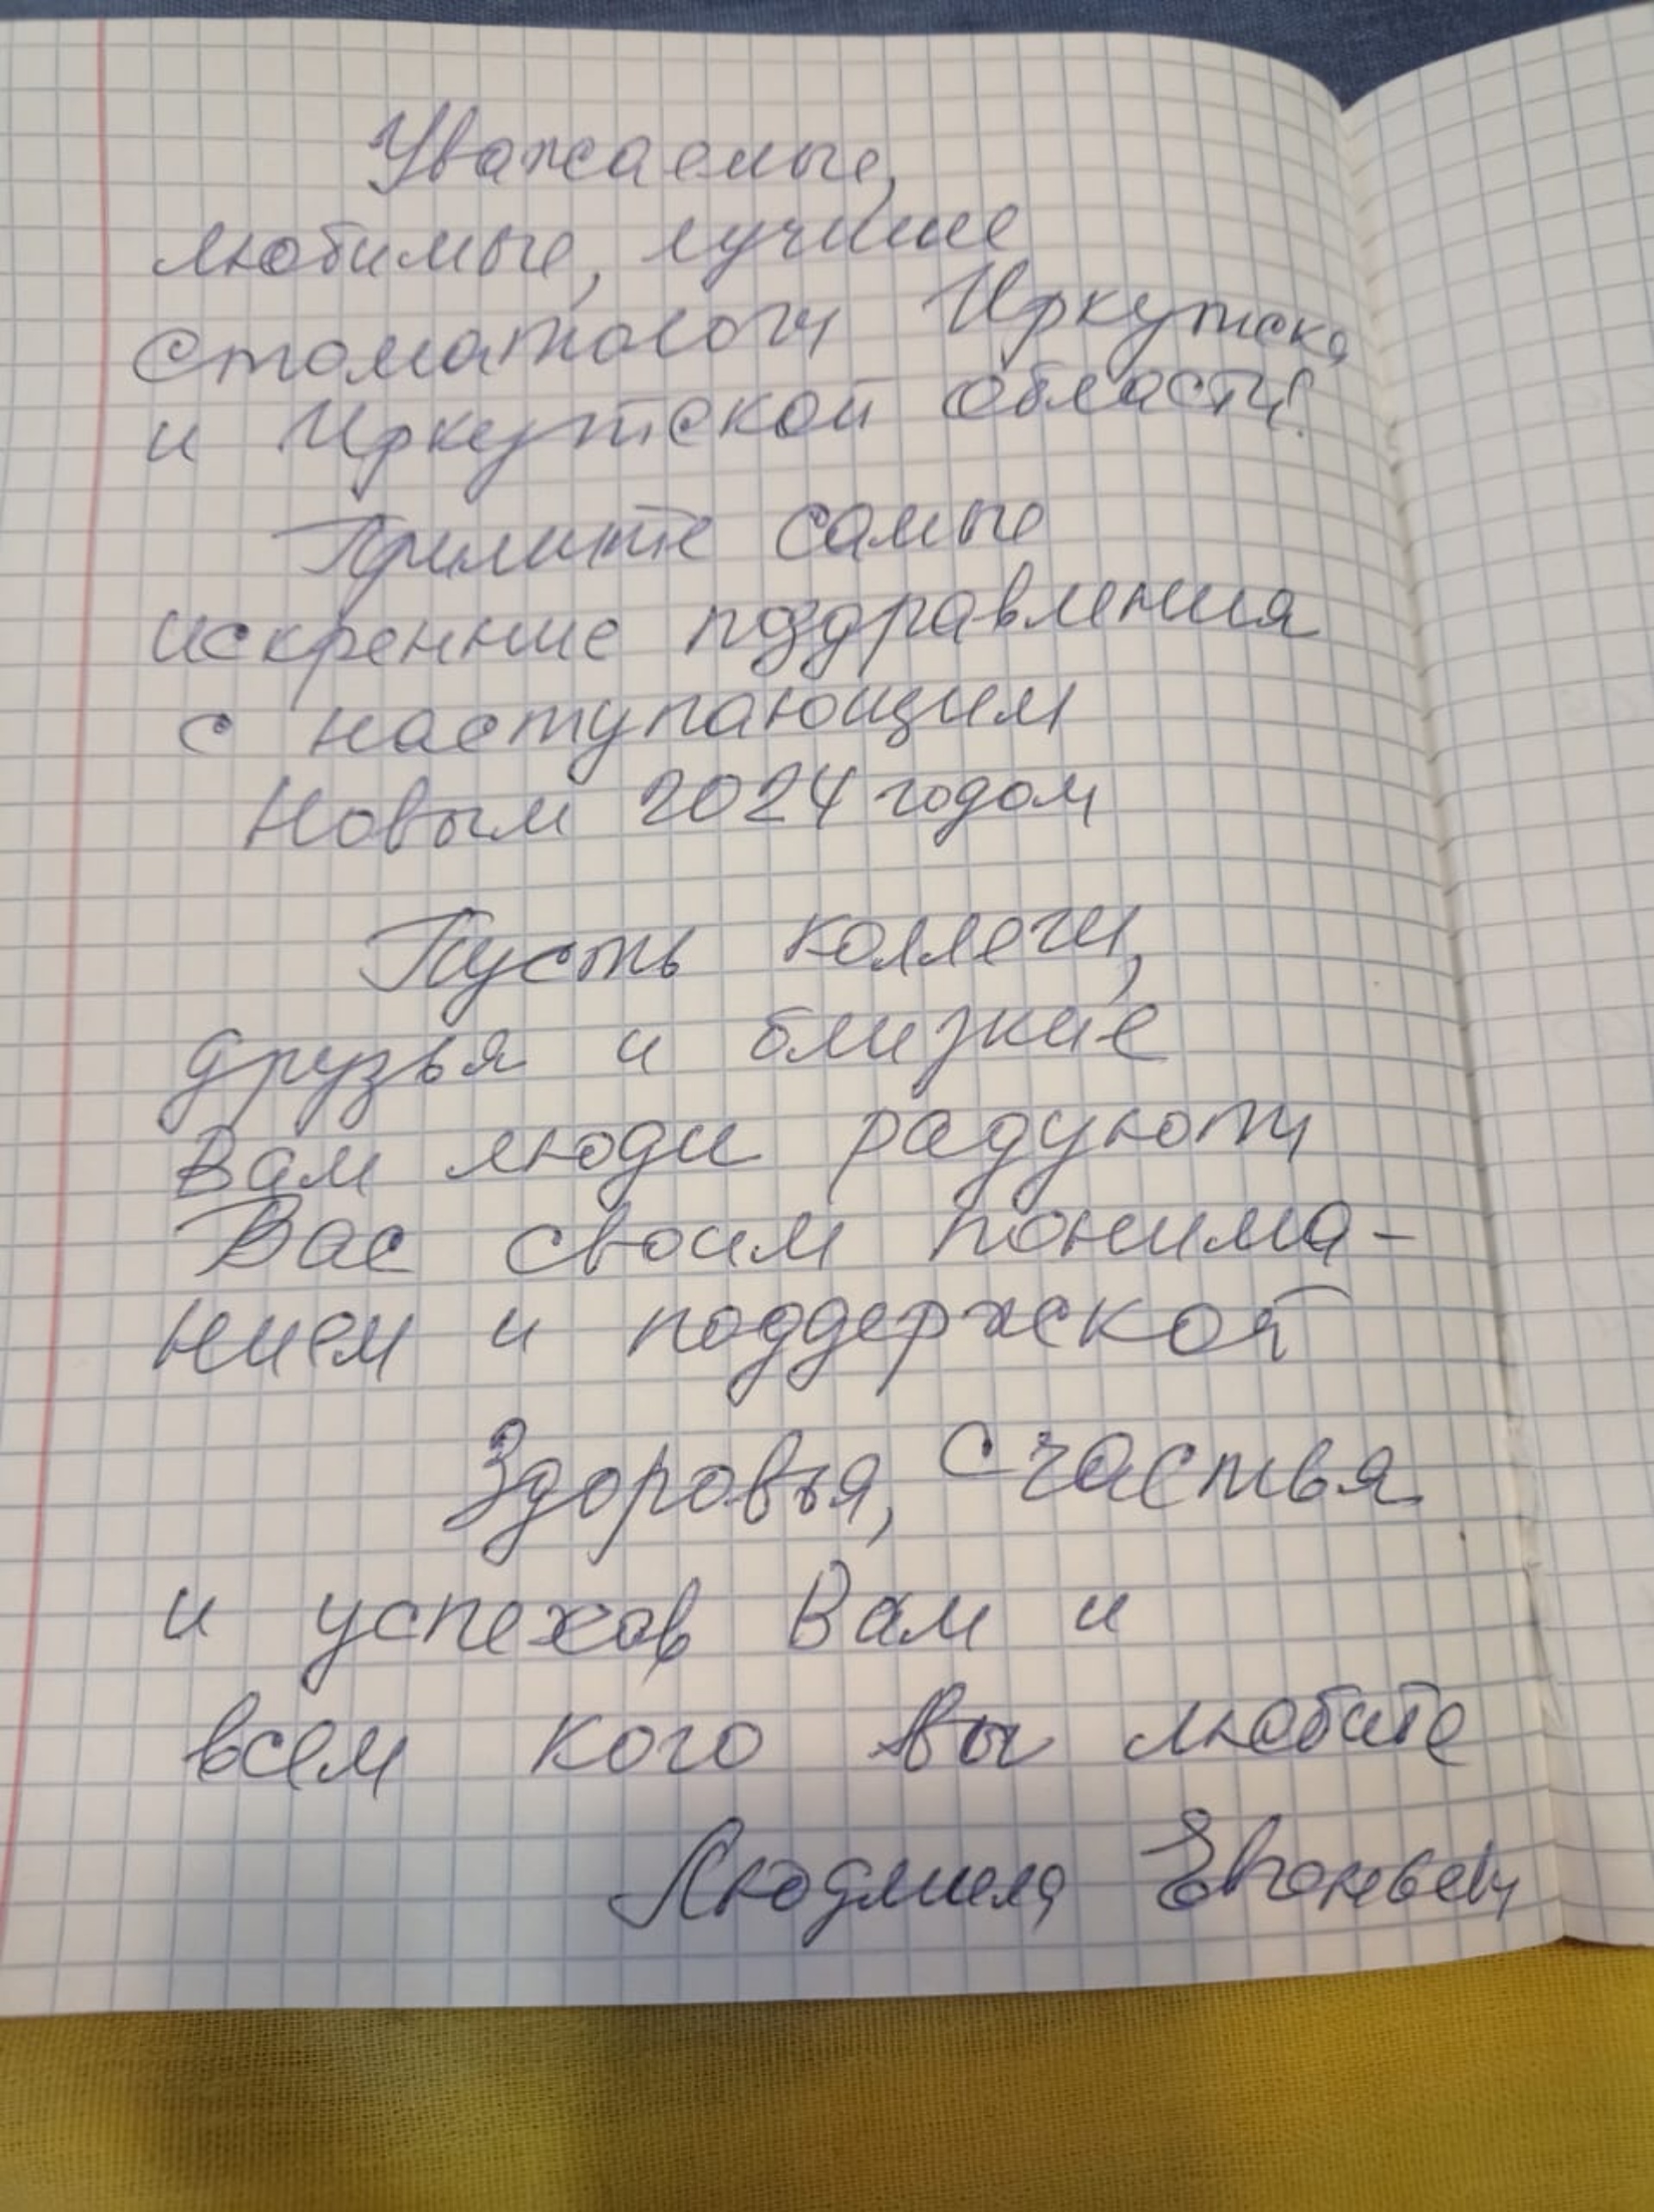 Уважаемые,
любимые, лучшие
стоматологи Иркутска
и Иркутской области!
Примите самые
искренние поздравления
с наступающим
Новым 2024 годом
Пусть коллеги,
друзья и близкие
Вам люди радуют
Вас своим понима-
нием и поддержкой
Здоровья, счастья
и успехов Вам и
всем кого Вы любите
Людмила